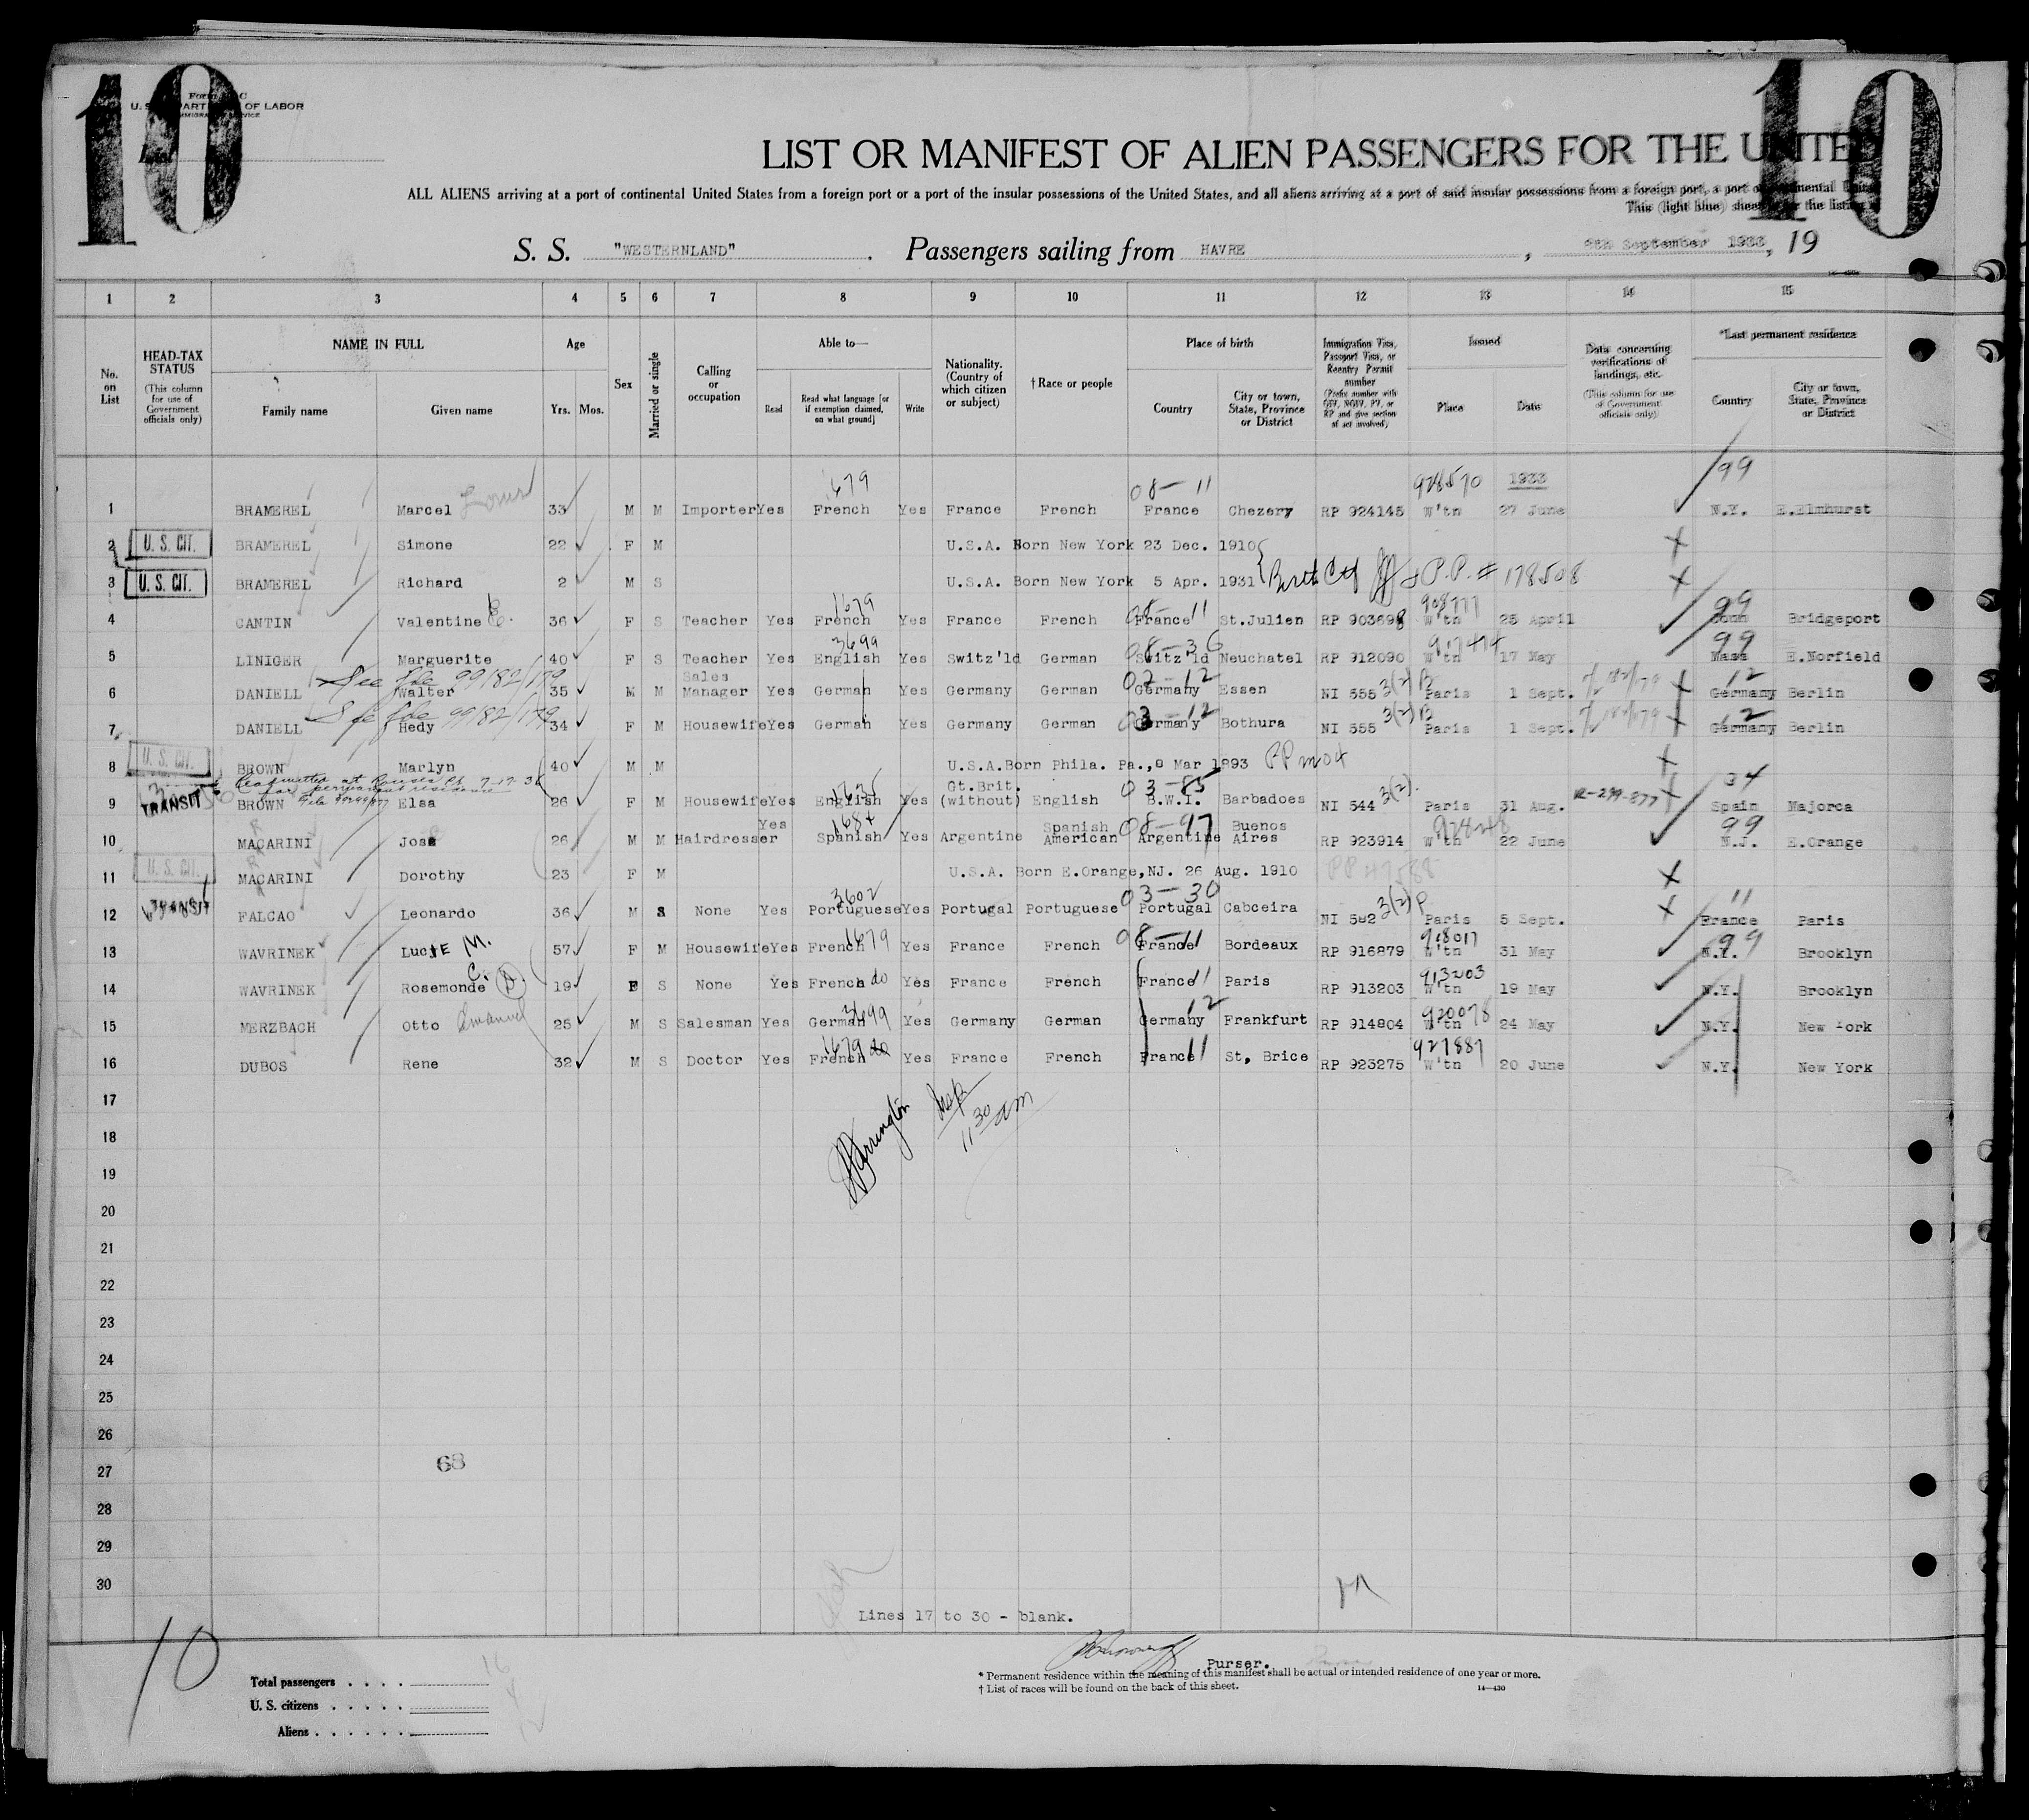 10
10
U. S. DEPARTMENT OF LABOR
IMMIGRATION SERVICE
List
LIST OR MANIFEST OF ALIEN PASSENGERS FOR THE UNITED
ALL ALIENS arriving at a port of continental United States from a foreign port or a port of the insular possessions of the United States, and all aliens arriving at a port of said insular possessions from a foreign port, a port of continental
This (light blue) sheet for the listing
S. S. "WESTERNLAND". Passengers sailing from HAVRE, September 1933, 19
1 2 3 4 5 6 7 8 9 10 11 12 13 14 15
No. on List
HEAD-TAX STATUS (This column for use of Government officials only)
NAME IN FULL Family name Given name
Age Yrs. Mos.
Sex
Married or single
Calling or occupation
Able to— Read Read what language [or if exemption claimed, on what ground] Write
Nationality. (Country of which citizen or subject)
† Race or people
Place of birth Country City or town, State, Province or District
Immigration Visa, Passport Visa, or Reentry Permit number (Prefix number with QIV, NQIV, PV, or RP and give section of act involved)
Issued Place Date
Data concerning verifications of landings, etc. (This column for use of Government officials only)
*Last permanent residence Country City or town, State, Province or District
1679 08-11 928570 1933 99
1 BRAMEREL Marcel 33 M M Importer Yes French Yes France French France Chezery RP 924145 W'tn 27 June N.Y. E.Elmhurst
2 U. S. CIT. BRAMEREL Simone 22 F M U.S.A. Born New York 23 Dec. 1910
3 U. S. CIT. BRAMEREL Richard 2 M S U.S.A. Born New York 5 Apr. 1931 P.P. # 178508
1679 08-11 908777 99
4 CANTIN Valentine E. 36 F S Teacher Yes French Yes France French France St.Julien RP 903698 W'tn 25 April Conn Bridgeport
3699 08-36 917414 99
5 LINIGER Marguerite 40 F S Teacher Yes English Yes Switz'ld German Switz'ld Neuchatel RP 912090 W'tn 17 May Mass E.Norfield
See file 99182/179
6 DANIELL Walter 35 M M Sales Manager Yes German Yes Germany German Germany Essen NI 555 3(2)B Paris 1 Sept. Germany Berlin
See file 99182/179
7 DANIELL Hedy 34 F M Housewife Yes German Yes Germany German Germany Bothura NI 555 3(2)B Paris 1 Sept. Germany Berlin
8 U. S. CIT. BROWN Marlyn 40 M M U.S.A. Born Phila. Pa., 8 Mar 1893
for permanent residence
9 TRANSIT BROWN Elsa 26 F M Housewife Yes English Yes Gt.Brit. (without) English B.W.I. Barbadoes NI 544 3(2). Paris 31 Aug. R-299-877 Spain Majorca
1684 08-97 99
10 MACARINI Jose 26 M M Hairdresser Yes Spanish Yes Argentine Spanish American Argentine Buenos Aires RP 923914 W'tn 22 June N.J. E.Orange
11 U. S. CIT. MACARINI Dorothy 23 F M U.S.A. Born E.Orange,NJ. 26 Aug. 1910
3602 03-30 11
12 TRANSIT FALCAO Leonardo 36 M S None Yes Portuguese Yes Portugal Portuguese Portugal Cabceira NI 582 3(2)P Paris 5 Sept. France Paris
13 WAVRINEK LucIE M. 57 F M Housewife Yes French 1679 Yes France French France Bordeaux RP 916879 918017 W'tn 31 May N.Y. 99 Brooklyn
14 WAVRINEK Rosemonde C. 19 F S None Yes French do Yes France French France 11 Paris RP 913203 913203 W'tn 19 May N.Y. Brooklyn
15 MERZBACH Otto Emanuel 25 M S Salesman Yes German 3699 Yes Germany German Germany 12 Frankfurt RP 914804 920078 W'tn 24 May N.Y. New York
16 DUBOS Rene 32 M S Doctor Yes French 1679 Yes France French France 11 St, Brice RP 923275 927887 W'tn 20 June N.Y. New York
17
11 30 am
18
19
20
21
22
23
24
25
26
27
68
28
29
30
Lines 17 to 30 - blank.
10
Purser.
Total passengers
U. S. citizens
Aliens
* Permanent residence within the meaning of this manifest shall be actual or intended residence of one year or more.
† List of races will be found on the back of this sheet.
14—430